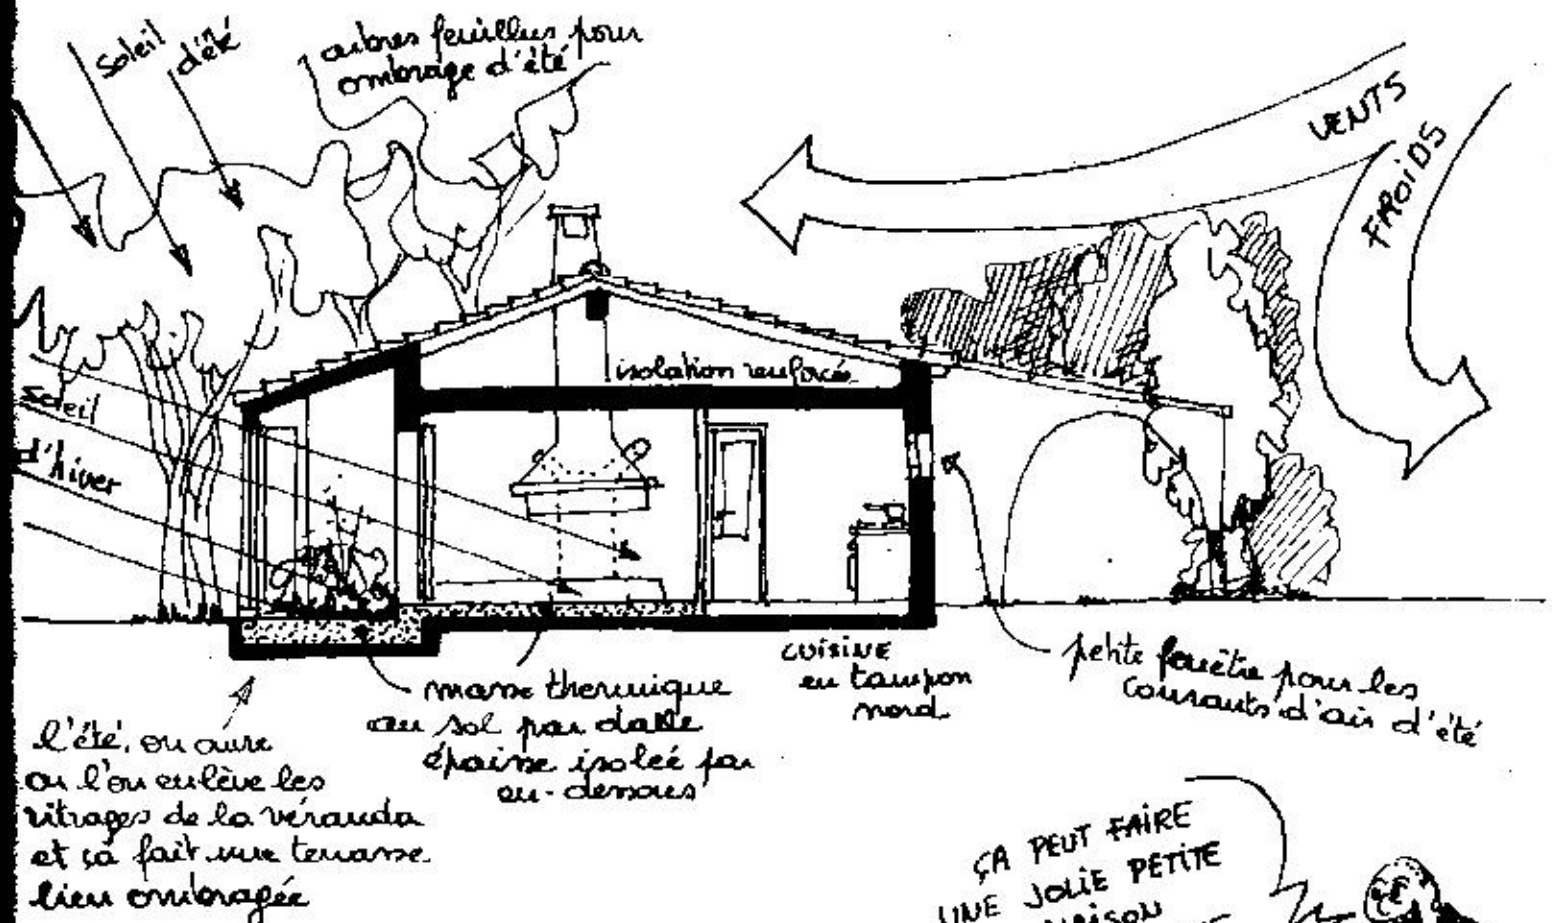 soleil d'été
arbres feuillus pour
ombrage d'été
VENTS
FROIDS
isolation renforcée
soleil
d'hiver
CUISINE
en tampon
nord
petite fenêtre pour les
courants d'air d'été
masse thermique
au sol par dalle
épaisse isolée par
en-dessous
l'été, on ouvre
ou l'on enlève les
vitrages de la véranda
et çà fait une terrasse
bien ombragée
ÇA PEUT FAIRE
UNE JOLIE PETITE
MAISON